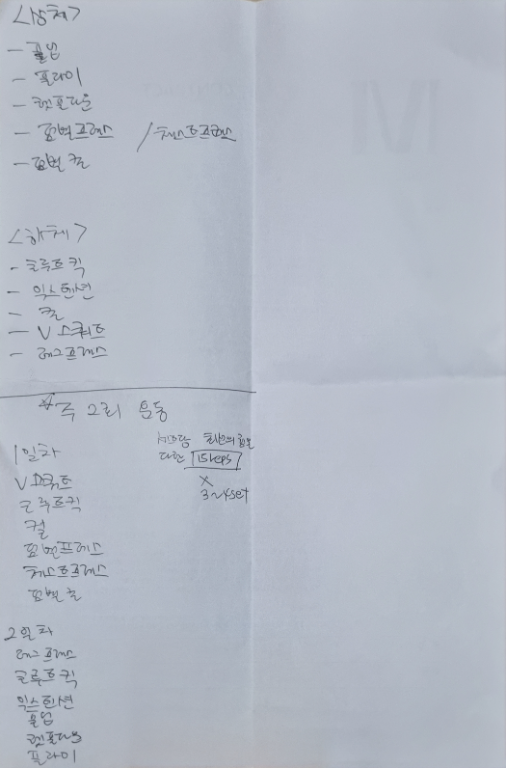 <상체>
- 풀업
- 플라이
- 렛풀다운
- 덤벨프레스 / 체스트프레스
- 덤벨 컬
<하체>
- 글루트킥
- 익스텐션
- 컬
- V 스쿼트
- 레그프레스
* 주 2회 운동
세트당 최선의 힘을
다한 15 reps
×
3~4set
1일차
V 스쿼트
글루트킥
컬
덤벨프레스
체스트프레스
덤벨 컬
2일차
레그프레스
글루트킥
익스텐션
풀업
렛풀다운
플라이